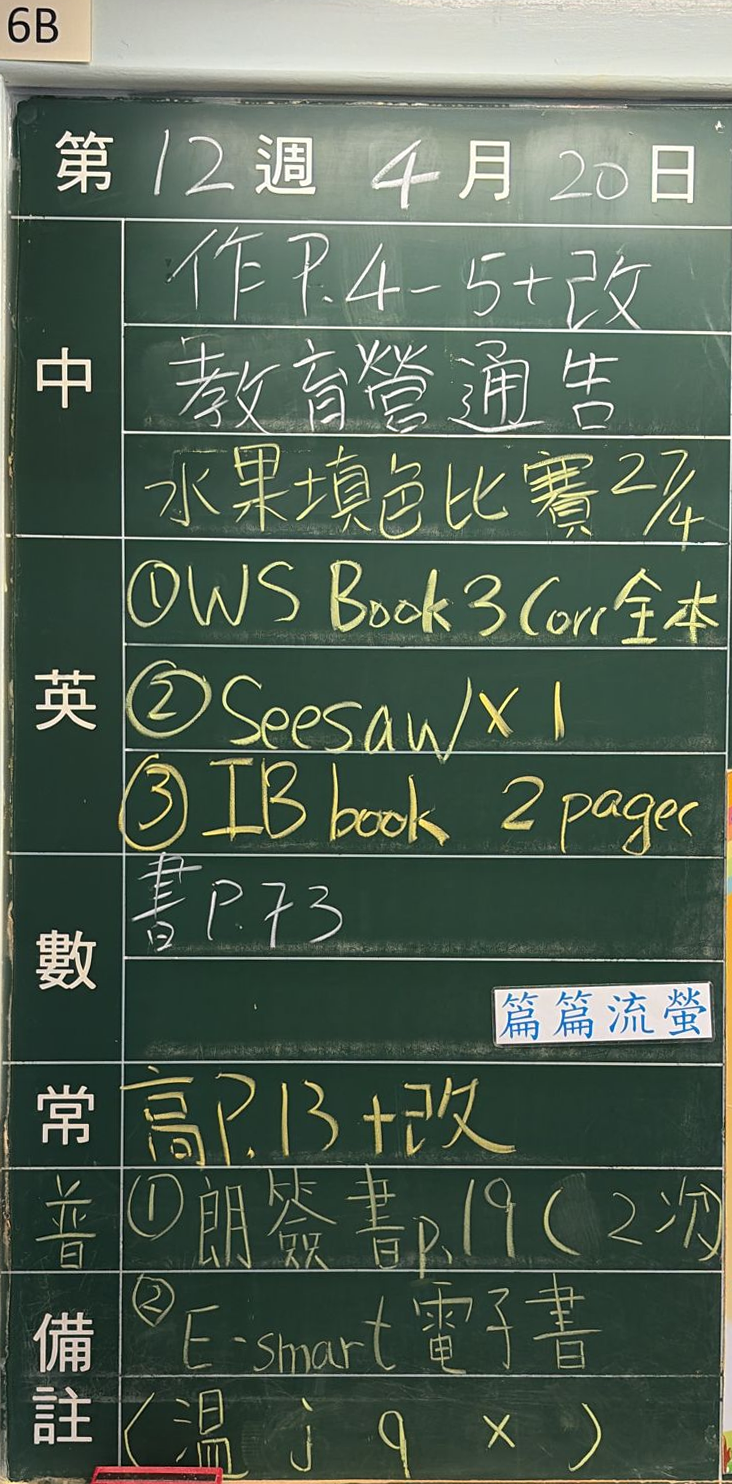 6B
第12週4月20日
中
作P.4-5+改
教育營通告
水果填色比賽27/4
英
①WS Book 3 Corr全本
②Seesaw x 1
③IB book 2 pages
數
書P.73
篇篇流螢
常
高P.13+改
普
①朗簽書p.19(2次)
備註
②E-smart電子書
(温 j q x)